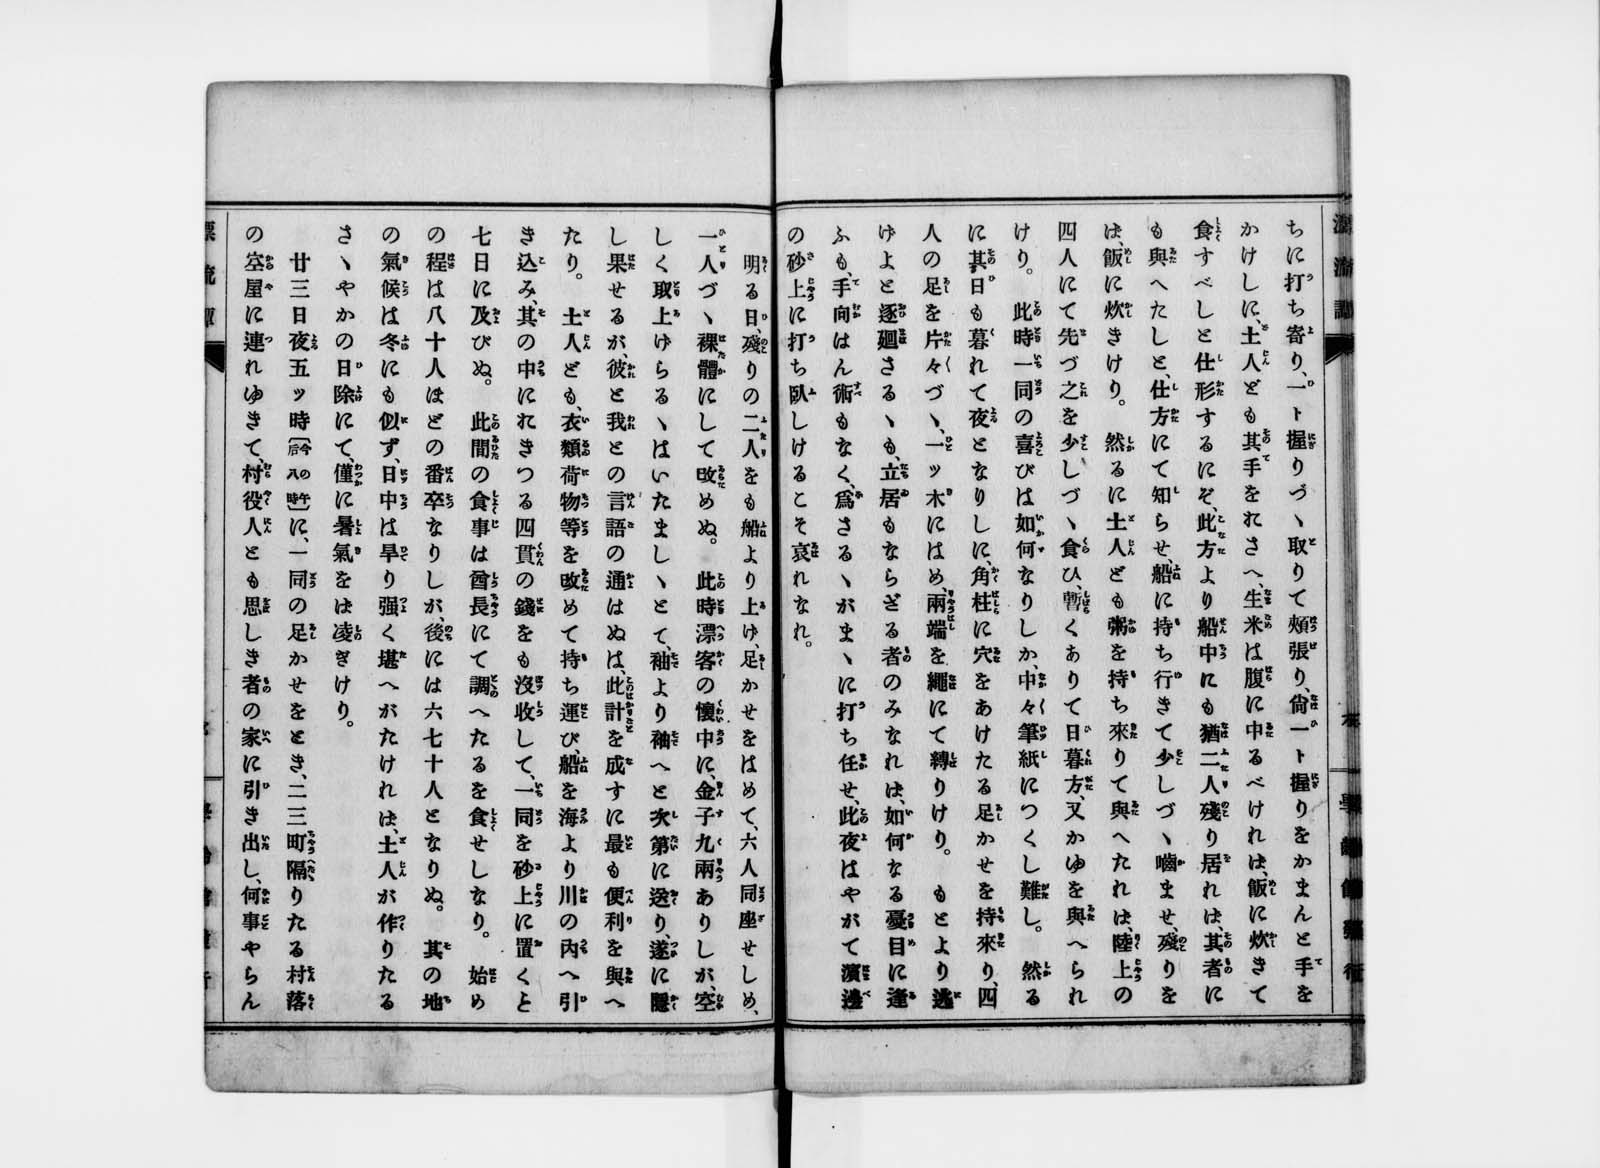 ちに打ち寄り、一ト握りづヽ取りて頰張り、尙一ト握りをかまんと手を
かけしに、土人ども其手をおさへ、生米は腹に中るべければ、飯に炊きて
食すべしと仕形するにぞ、此方より船中にも猶二人殘り居れば、其者に
も與へたしと、仕方にて知らせ、船に持ち行きて少しづヽ嚙ませ、殘りを
ば、飯に炊きけり。然るに土人ども粥を持ち來りて與へたれば、陸上の
四人にて先づ之を少しづヽ食ひ、暫くありて日暮方、又かゆを與へられ
けり。此時一同の喜びは如何なりしか、中々筆紙につくし難し。然る
に其日も暮れて夜となりしに、角柱に穴をあけたる足かせを持來り、四
人の足を片々づヽ、一ッ木にはめ、兩端を繩にて縛りけり。もとより逃
げよと逐廻さるヽも、立居もならざる者のみなれば、如何なる憂目に逢
ふも、手向はん術もなく、爲さるヽがまヽに打ち任せ、此夜はやがて濱邊
の砂上に打ち臥しけるこそ哀れなれ。
明る日、殘りの二人をも船より上げ、足かせをはめて、六人同座せしめ、
一人づヽ裸體にして改めぬ。此時漂客の懷中に、金子九兩ありしが、空
しく取上げらるヽはいたましヽとて、袖より袖へと次第に送り、遂に隱
し果せるが、彼と我との言語の通はぬは、此計を成すに最も便利を與へ
たり。土人ども、衣類荷物等を改めて持ち運び、船を海より川の內へ引
き込み、其の中におきつる四貫の錢をも沒收して、一同を砂上に置くと
七日に及びぬ。此間の食事は酋長にて調へたるを食せしなり。始め
の程は八十人ほどの番卒なりしが、後には六七十人となりぬ。其の地
の氣候は冬にも似ず、日中は旱り强く堪へがたければ、土人が作りたる
さヽやかの日除にて、僅に暑氣をば凌ぎけり。
廿三日夜五ッ時(今の午后八時)に、一同の足かせをとき、二三町隔りたる村落
の空屋に連れゆきて、村役人とも思しき者の家に引き出し、何事やらん